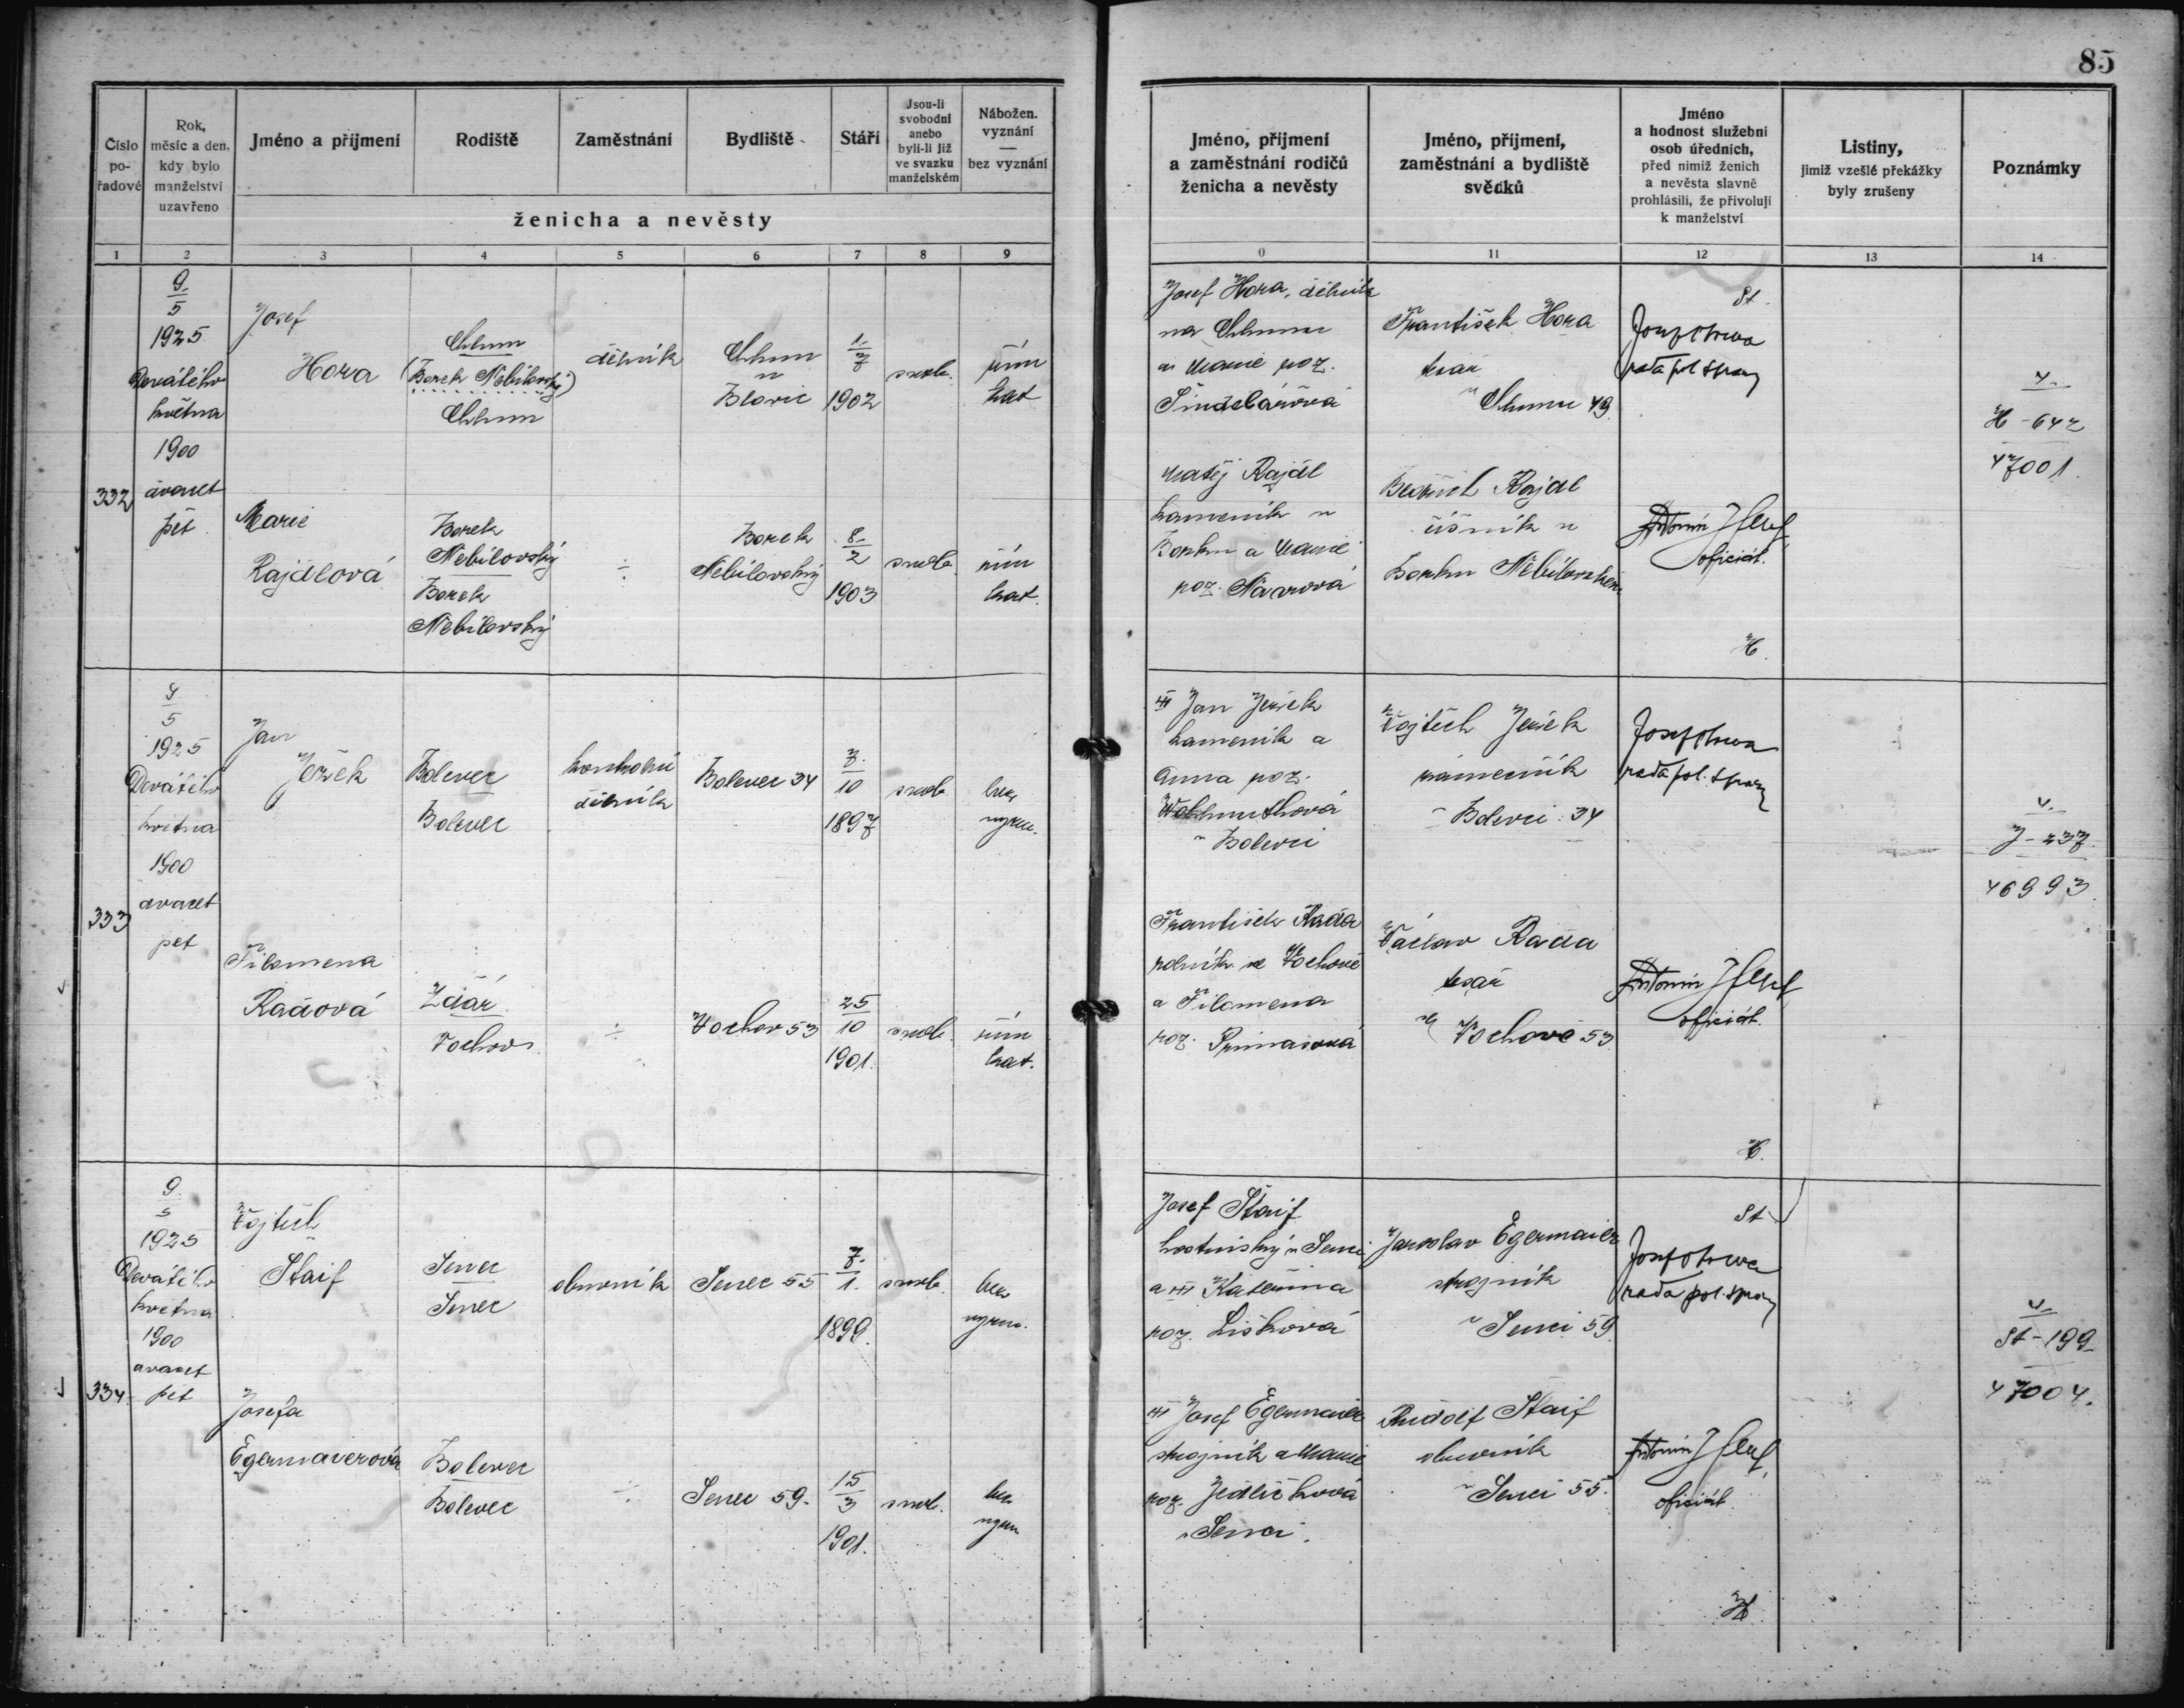 85
Číslo
po-
řadové
Rok,
měsíc a den,
kdy bylo
manželství
uzavřeno
Jméno a příjmení
Rodiště
Zaměstnání
Bydliště
Stáří
Jsou-li
svobodni
anebo
byli-li již
ve svazku
manželském
Nábožen.
vyznání
—
bez vyznání
ženicha a nevěsty
Jméno, příjmení
a zaměstnání rodičů
ženicha a nevěsty
Jméno, příjmení,
zaměstnání a bydliště
svědků
Jméno
a hodnost služební
osob úředních,
před nimiž ženich
a nevěsta slavně
prohlásili, že přivolují
k manželství
Listiny,
jimiž vzešlé překážky
byly zrušeny
Poznámky
1 2 3 4 5 6 7 8 9
0 11 12 13 14
332
9.
5
1925
Devátého
května
1900
dvacet
pět
Josef
Hora
Chlum
(Borek Nebílovský)
Chlum
dělník
Chlum
u
Blovic
1.
7
1902
svob.
řím
kat
Josef Hora, dělník
na Chlumu
a Marie roz.
Šindelářová
František Hora
tesař
v Chlumu 49
St.
rada pol. správy
4.
H - 642
47001.
Marie
Rajdlová
Borek
Nebílovský
Borek
Nebílovský
÷
Borek
Nebílovský
8.
2
1903
svob.
řím
kat.
Matěj Rajdl
kameník v
Borku a Marie
roz. Návrová
Bedřich Rajdl
číšník v
Borku Nebílovském
Antonín
oficiál.
H.
333
4
5
1925
Devátého
května
1900
dvacet
pět
Jan
Ježek
Bolevec
Bolevec
dělník
Bolevec 34
3.
10
1897
svob.
bez
vyzn.
Jan Ježek
kameník a
Anna roz.
Wohlmuthová
v Bolevci
Vojtěch Ježek
zámečník
v Bolevci 34
rada pol. správy
4.
J - 237.
46993.
Filomena
Radová
Žďár
Vochov
÷
Vochov 53
25
10
1901.
svob.
řím
kat.
František Rada
rolník ve Vochově
a Filomena
roz. Primasová
Václav Rada
tesař
ve Vochově 53.
Antonín
oficiál.
H.
334.
9.
5
1925
Devátého
května
1900
dvacet
pět
Vojtěch
Štaif
Senec
Senec
obuvník
Senec 55
7.
1.
1899.
svob.
bez
vyzn.
Josef Štaif
hostinský v Senci
a Kateřina
roz. Lišková
Jaroslav Egermaier
strojník
v Senci 59.
St
rada pol. správy
4.
St - 199
47004.
Josefa
Egermaierová
Bolevec
Bolevec
÷
Senec 59.
15
3
1901.
svob.
bez
vyzn
Josef Egermaier
strojník a Marie
roz. Jedličková
v Senci.
Rudolf Štaif
obuvník
v Senci 55.
Antonín
oficiál.
H.